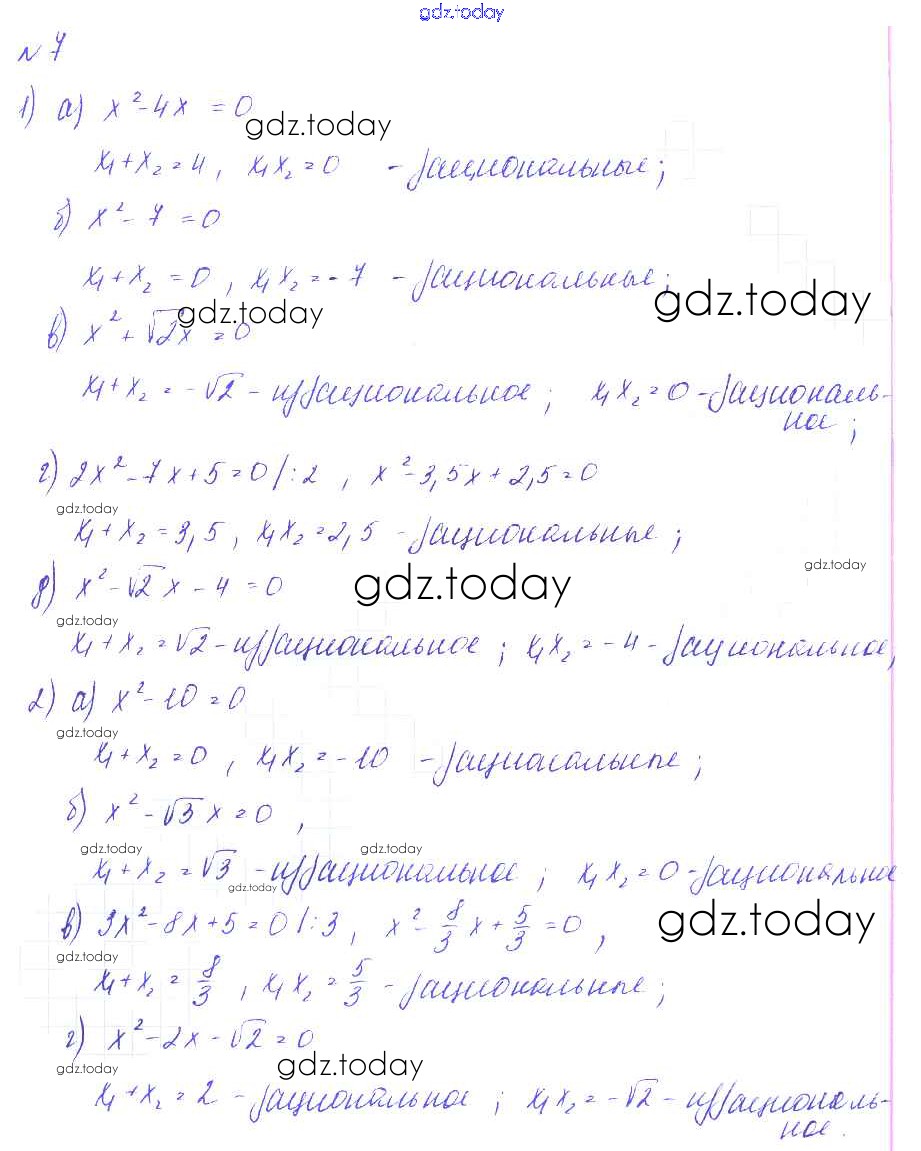 gdz.today
№ 7
1) а) x² - 4x = 0
gdz.today
x₁ + x₂ = 4, x₁x₂ = 0 - рациональные;
б) x² - 7 = 0
x₁ + x₂ = 0, x₁x₂ = -7 - рациональные;
gdz.today gdz.today
в) x² + √2x = 0
x₁ + x₂ = -√2 - иррациональное; x₁x₂ = 0 - рациональ-
ное;
г) 2x² - 7x + 5 = 0 /:2, x² - 3,5x + 2,5 = 0
gdz.today
x₁ + x₂ = 3,5, x₁x₂ = 2,5 - рациональные;
gdz.today
д) x² - √2 x - 4 = 0 gdz.today
gdz.today
x₁ + x₂ = √2 - иррациональное; x₁x₂ = -4 - рациональное;
2) а) x² - 10 = 0
gdz.today
x₁ + x₂ = 0, x₁x₂ = -10 - рациональные;
б) x² - √3 x = 0,
gdz.today gdz.today
x₁ + x₂ = √3 - иррациональное; x₁x₂ = 0 - рациональное
gdz.today
в) 3x² - 8x + 5 = 0 /:3, x² - 8/3 x + 5/3 = 0,
gdz.today
gdz.today
x₁ + x₂ = 8/3, x₁x₂ = 5/3 - рациональные;
г) x² - 2x - √2 = 0
gdz.today gdz.today
x₁ + x₂ = 2 - рациональное; x₁x₂ = -√2 - иррациональ-
ное.